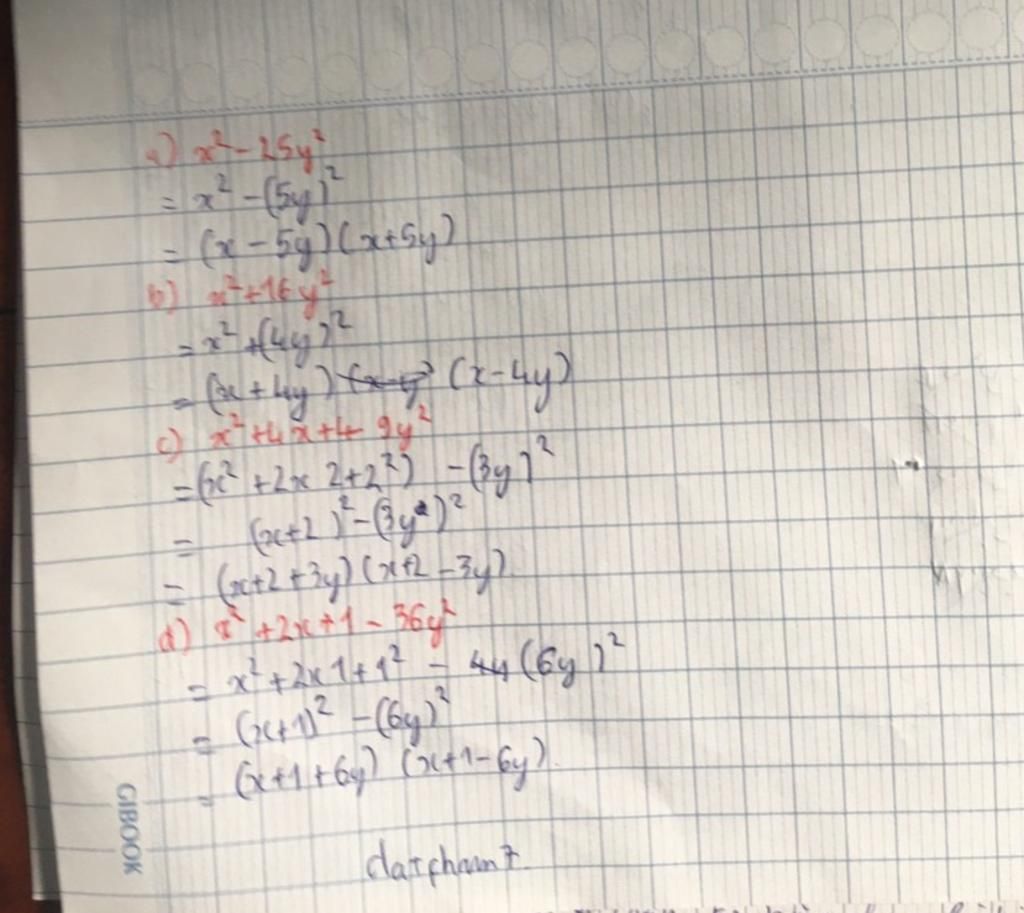 a) x² - 25y²
= x² - (5y)²
= (x - 5y)(x+5y)
b) x²+16y²
= x² +(4y)²
= (x+4y) (x-y) (x-4y)
c) x²+4x+4- 9y²
=(x² +2x 2+2²) -(3y)²
= (x+2)²-(3y²)²
= (x+2+3y)(x+2-3y)
d) x²+2x+1 - 36y²
= x²+2x1+1² - 4y (6y)²
= (x+1)² -(6y)²
= (x+1+6y) (x+1-6y).
GIBOOK